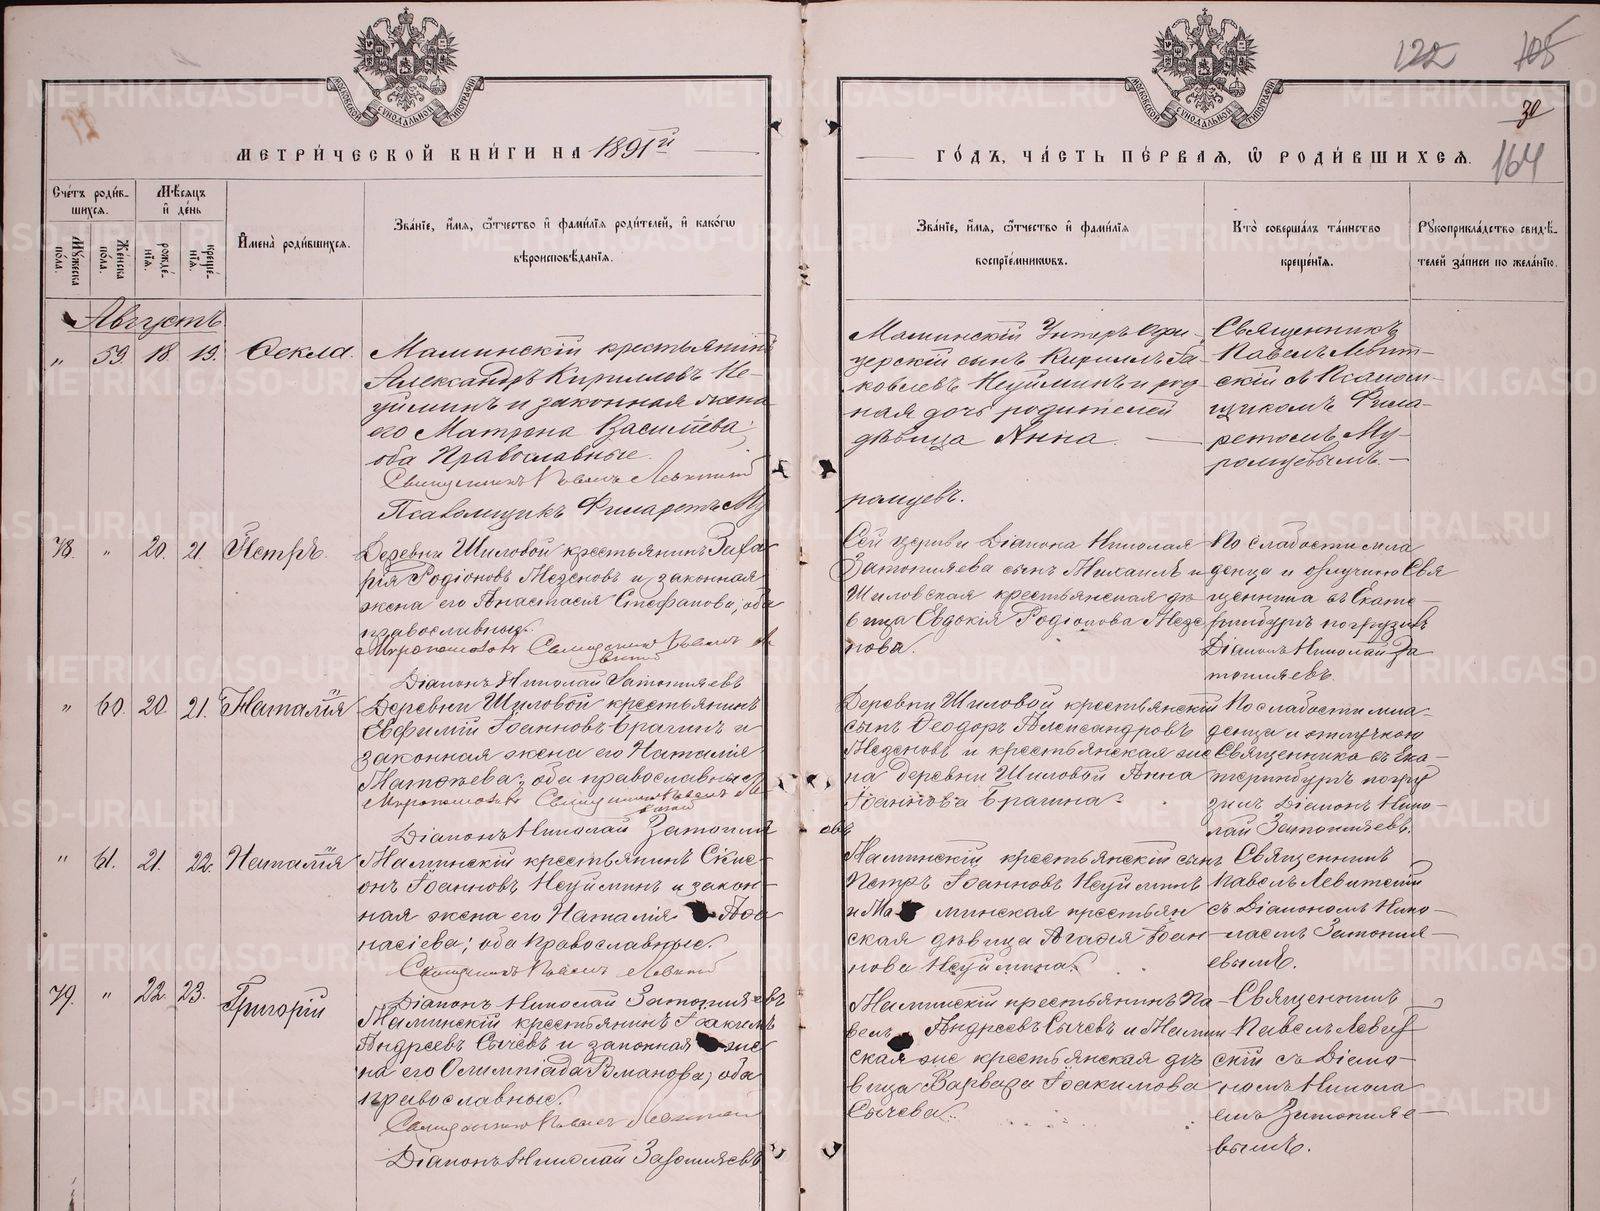 122 105
30
164
МЕТРИЧЕСКОЙ КНИГИ НА 1891й
ГОДЪ, ЧАСТЬ ПЕРВАЯ, Ѿ РОДИВШИХСЯ.
МОСКОВСКОЙ СѴНОДАЛЬНОЙ ТИПОГРАФІИ
МОСКОВСКОЙ СѴНОДАЛЬНОЙ ТИПОГРАФІИ
Счетъ родившихся.
Мужеска пола.
Женска пола.
Мѣсяцъ и день
рожденія.
крещенія.
Имена родившихся.
Званіе, имя, ѿчество и фамилія родителей, и какогѡ
вѣроисповѣданія.
Званіе, имя, ѿчество и фамилія
воспріемникѡвъ.
Кто совершалъ таинство
крещенія.
Рукоприкладство свидѣ-
телей записи по желанію.
Августъ
„ 59 18 19. Ѳекла.
Маминскій крестьянинъ
Александръ Кирилловъ Не-
уйминъ и законная жена
его Матрона Васильева;
оба Православные.
Священникъ Павелъ Левитскій
Псаломщикъ Филаретъ Му
Маминскій Унтеръ Офи-
церскій сынъ Кириллъ Іа-
ковлевъ Неуйминъ и род
ная дочь родителей
дѣвица Анна.
ромцевъ.
Священникъ
Павелъ Левит-
скій съ Псалом-
щикомъ Фила-
ретомъ Му-
ромцевымъ.
78. „ 20. 21 Петръ.
Деревни Шиловой крестьянинъ Заха
рія Родіоновъ Мезеновъ и законная
жена его Анастасія Стефанова; оба
православные.
Мѵропомазовалъ Священникъ Павелъ Ле
витскій
Діаконъ Николай Затопляевъ
Сей церкви Діакона Николая
Затопляева сынъ Михаилъ и
Шиловская крестьянская дѣ
вица Евдокія Родіонова Мезе
нова.
По слабости мла
денца и отлучкою Свя
щенника въ Екате-
ринбургъ погрузилъ
Діаконъ Николай За
топляевъ.
„ 60. 20. 21. Наталія
Деревни Шиловой крестьянинъ
Евфимій Іоанновъ Брагинъ и
законная жена его Наталія
Матѳеева; оба православные
Мѵропомазовалъ Священникъ Павелъ Ле
витскій
Діаконъ Николай Затопляе
Деревни Шиловой крестьянскій
сынъ Ѳеодоръ Александровъ
Мезеновъ и крестьянская же
на деревни Шиловой Анна
Іоаннова Брагина.
въ
По слабости мла-
денца и отлучкою
Священника въ Ека-
теринбургъ погру
зилъ Діаконъ Нико-
лай Затопляевъ.
„ 61. 21. 22. Наталія
Маминскій крестьянинъ Симе-
онъ Іоанновъ Неуйминъ и закон-
ная жена его Наталія Аѳа
насіева; оба Православные.
Священникъ Павелъ Левитскій
Діаконъ Николай Затопляевъ
Маминскій крестьянскій сынъ
Петръ Іоанновъ Неуйминъ
и Ма минская крестьян
ская дѣвица Агафія Іоан-
нова Неуймина.
Священникъ
Павелъ Левитскій
съ Діакономъ Нико-
лаемъ Затопля-
евымъ.
79. „ 22. 23. Григорій
Маминскій крестьянинъ Іоакимъ
Андреевъ Сычевъ и законная же
на его Олимпіада Романова; оба
православные.
Священникъ Павелъ Левитскій
Діаконъ Николай Затопляевъ.
Маминскій крестьянинъ Па-
велъ Андреевъ Сычевъ и Мамин
ская же крестьянская дѣ
вица Варвара Іоакимова
Сычева.
Священникъ
Павелъ Левит
скій съ Діако-
номъ Никола
емъ Затопляе-
вымъ.
METRIKI.GASO-URAL.RU